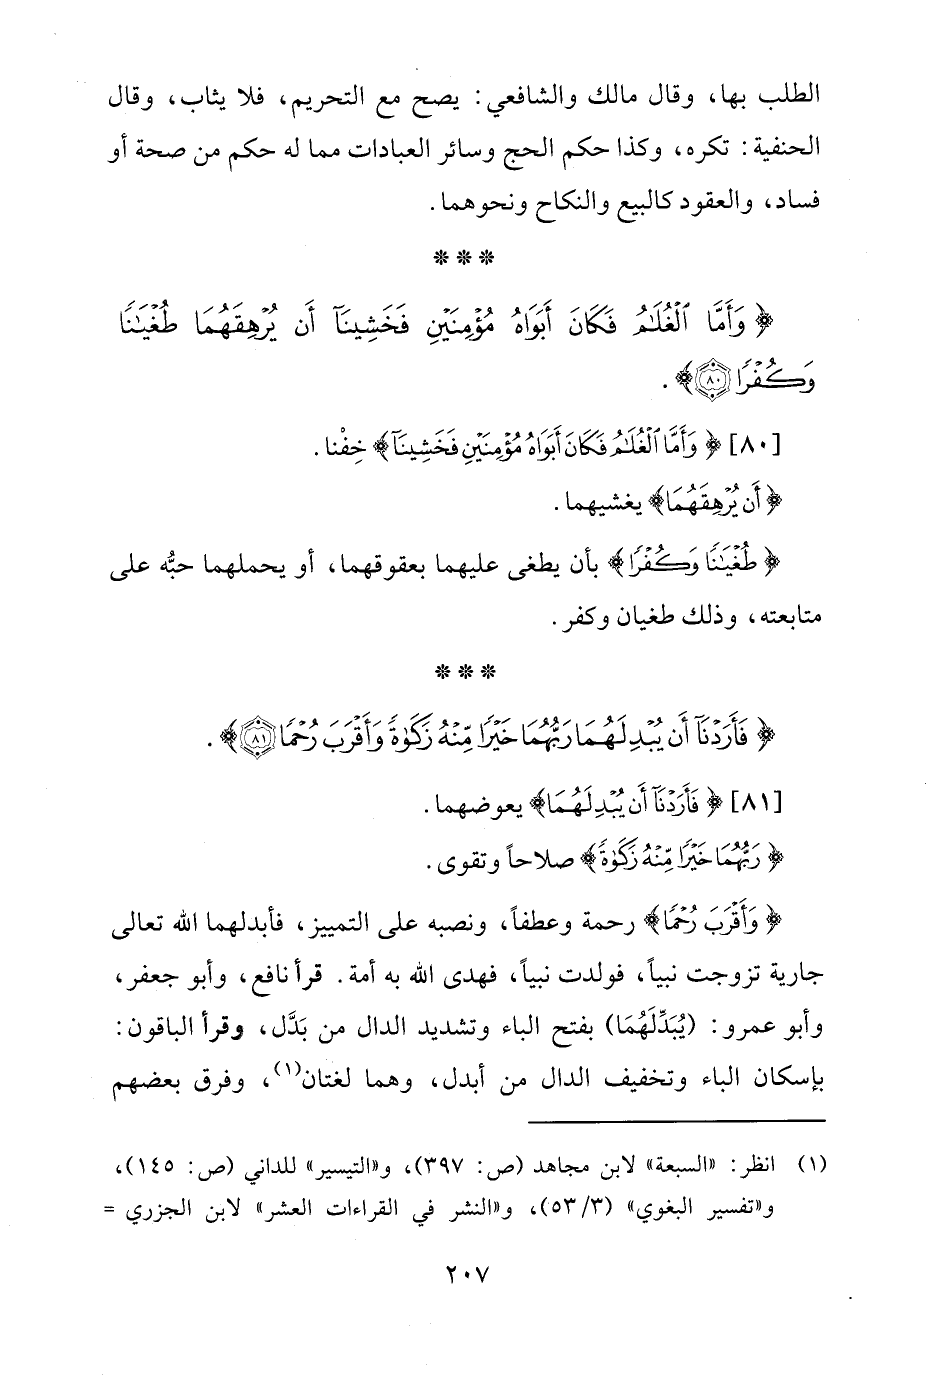 الطلب بها، وقال مالك والشافعي: يصح مع التحريم، فلا يثاب، وقال
الحنفية: تكره، وكذا حكم الحج وسائر العبادات مما له حكم من صحة أو
فساد، والعقود كالبيع والنكاح ونحوهما.
***
﴿وَأَمَّا ٱلْغُلَٰمُ فَكَانَ أَبَوَاهُ مُؤْمِنَيْنِ فَخَشِينَآ أَن يُرْهِقَهُمَا طُغْيَٰنًا
وَكُفْرًا ۝٨٠﴾.
[٨٠] ﴿وَأَمَّا ٱلْغُلَٰمُ فَكَانَ أَبَوَاهُ مُؤْمِنَيْنِ فَخَشِينَآ﴾ خِفْنا.
﴿أَن يُرْهِقَهُمَا﴾ يغشيهما.
﴿طُغْيَٰنًا وَكُفْرًا﴾ بأن يطغى عليهما بعقوقهما، أو يحملهما حبُّه على
متابعته، وذلك طغيان وكفر.
***
﴿فَأَرَدْنَآ أَن يُبْدِلَهُمَا رَبُّهُمَا خَيْرًا مِّنْهُ زَكَوٰةً وَأَقْرَبَ رُحْمًا ۝٨١﴾.
[٨١] ﴿فَأَرَدْنَآ أَن يُبْدِلَهُمَا﴾ يعوضهما.
﴿رَبُّهُمَا خَيْرًا مِّنْهُ زَكَوٰةً﴾ صلاحاً وتقوى.
﴿وَأَقْرَبَ رُحْمًا﴾ رحمة وعطفاً، ونصبه على التمييز، فأبدلهما الله تعالى
جارية تزوجت نبياً، فولدت نبياً، فهدى الله به أمة. قرأ نافع، وأبو جعفر،
وأبو عمرو: (يُبَدِّلَهُمَا) بفتح الباء وتشديد الدال من بَدَّل، وقرأ الباقون:
بإسكان الباء وتخفيف الدال من أبدل، وهما لغتان(١)، وفرق بعضهم
(١) انظر: «السبعة» لابن مجاهد (ص: ٣٩٧)، و«التيسير» للداني (ص: ١٤٥)،
و«تفسير البغوي» (٣/ ٥٣)، و«النشر في القراءات العشر» لابن الجزري =
٢٠٧